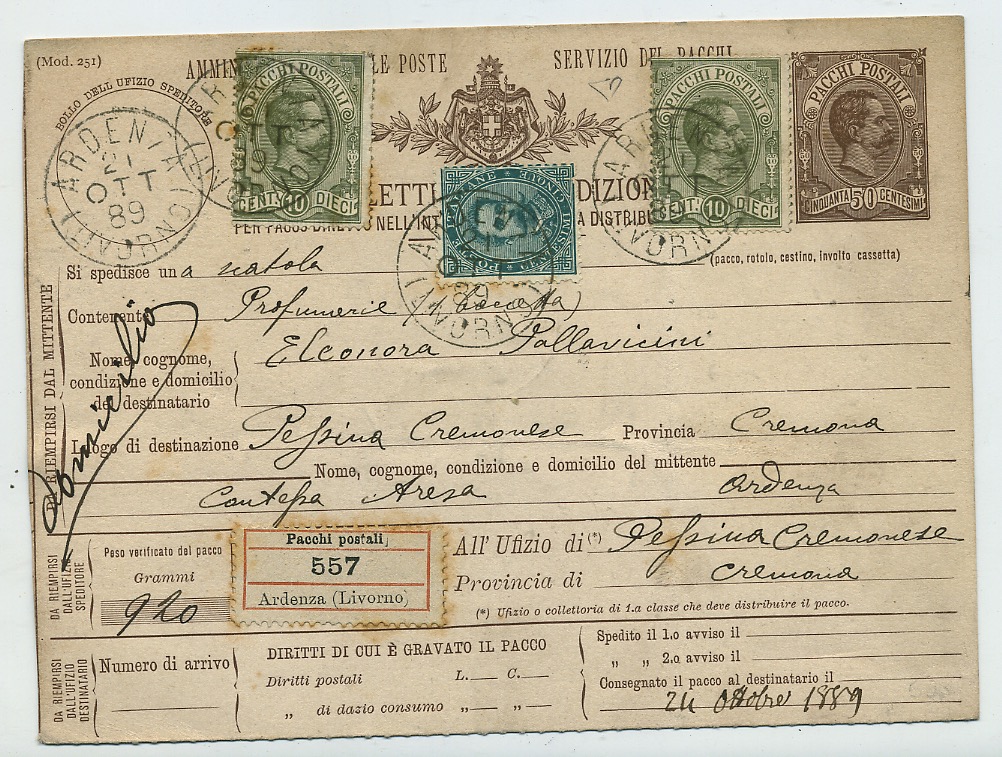 (Mod. 251)
SERVIZIO DEI PACCHI
LE POSTE
BOLLO DELL UFIZIO SPEDITORE
ARDENZA
21
OTT
89
(LIVORNO)
PACCHI POSTALI
CENT. 10 DIECI
PACCHI POSTALI
CENT. 10 DIECI
PACCHI POSTALI
CINQUANTA 50 CENTESIMI
(pacco, rotolo, cestino, involto cassetta)
Si spedisce una scatola
Contenente Profumerie
Nome, cognome, Eleonora Pallavicini
condizione e domicilio
del destinatario
Luogo di destinazione Pessina Cremonese Provincia Cremona
Nome, cognome, condizione e domicilio del mittente
Contessa Aresa Ardenza
DA RIEMPIRSI DAL MITTENTE
Domicilio
DA RIEMPIRSI
DALL'UFIZIO
SPEDITORE
Peso verificato del pacco
Grammi
920
Pacchi postali
557
Ardenza (Livorno)
All' Ufizio di (*) Pessina Cremonese
Provincia di Cremona
(*) Ufizio o collettoria di 1.a classe che deve distribuire il pacco.
DA RIEMPIRSI
DALL'UFIZIO
DESTINATARIO
Numero di arrivo
DIRITTI DI CUI È GRAVATO IL PACCO
Diritti postali L. C.
„ di dazio consumo „ „
Spedito il 1.o avviso il
„ „ 2.o avviso il
Consegnato il pacco al destinatario il
24 Ottobre 1889